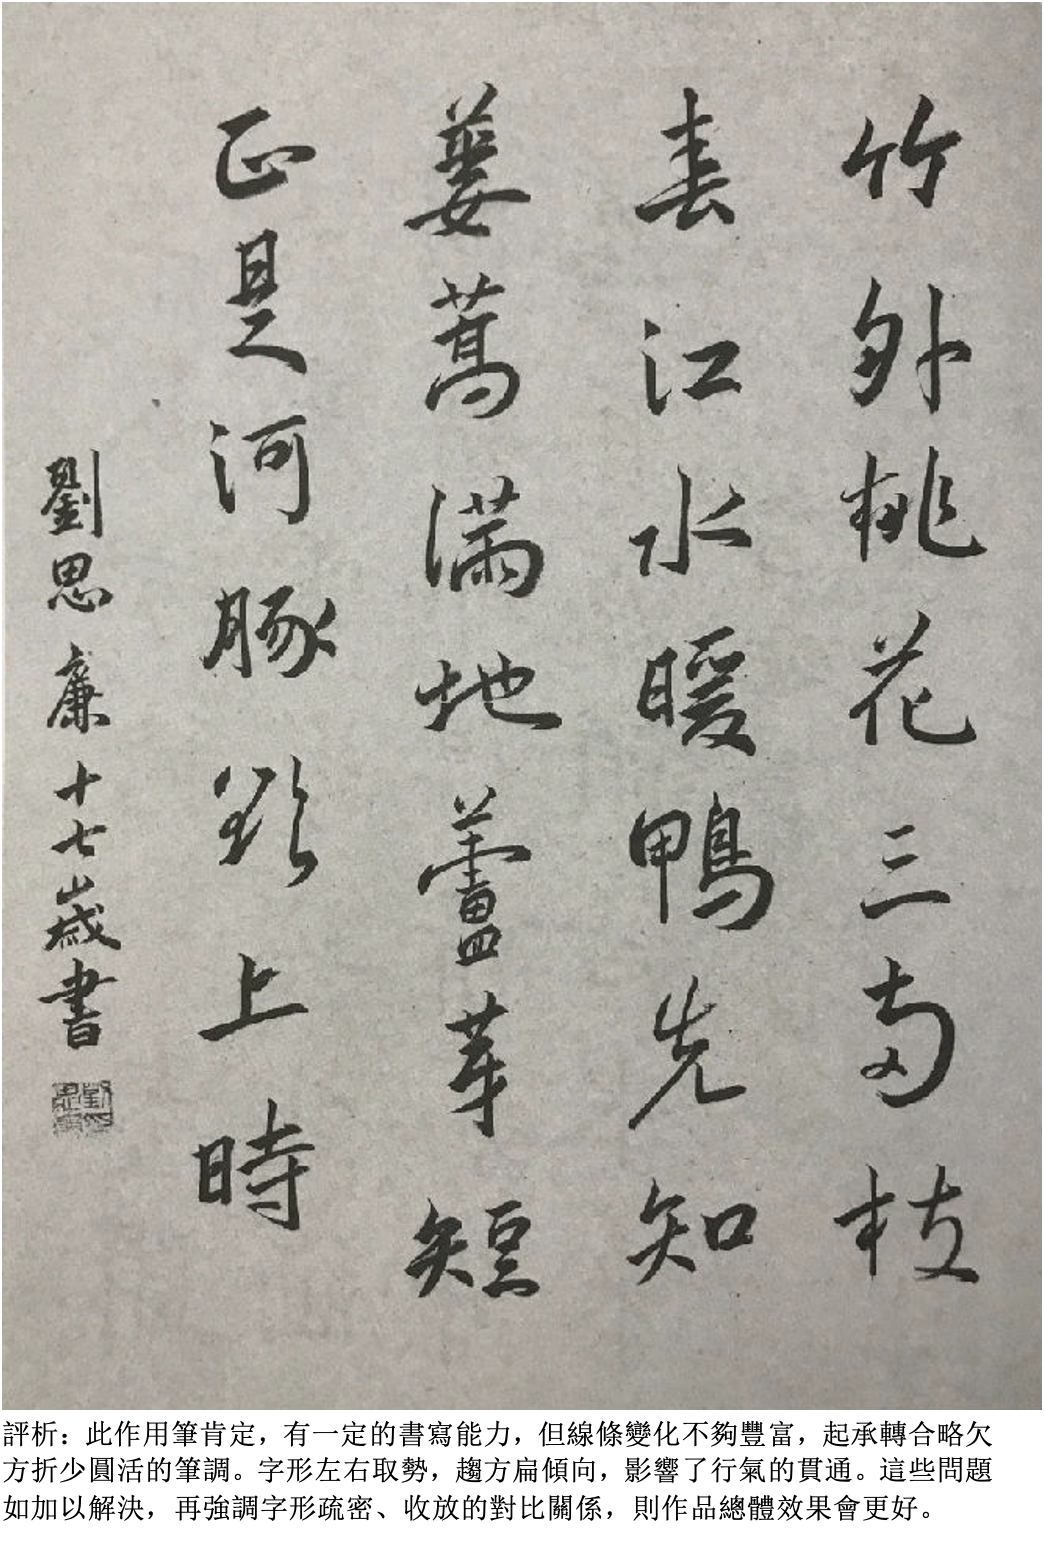 竹外桃花三兩枝
春江水暖鴨先知
蔞蒿滿地蘆芽短
正是河豚欲上時
劉思廉十七歲書
評析：此作用筆肯定，有一定的書寫能力，但線條變化不夠豐富，起承轉合略欠
方折少圓活的筆調。字形左右取勢，趨方扁傾向，影響了行氣的貫通。這些問題
如加以解決，再強調字形疏密、收放的對比關係，則作品總體效果會更好。